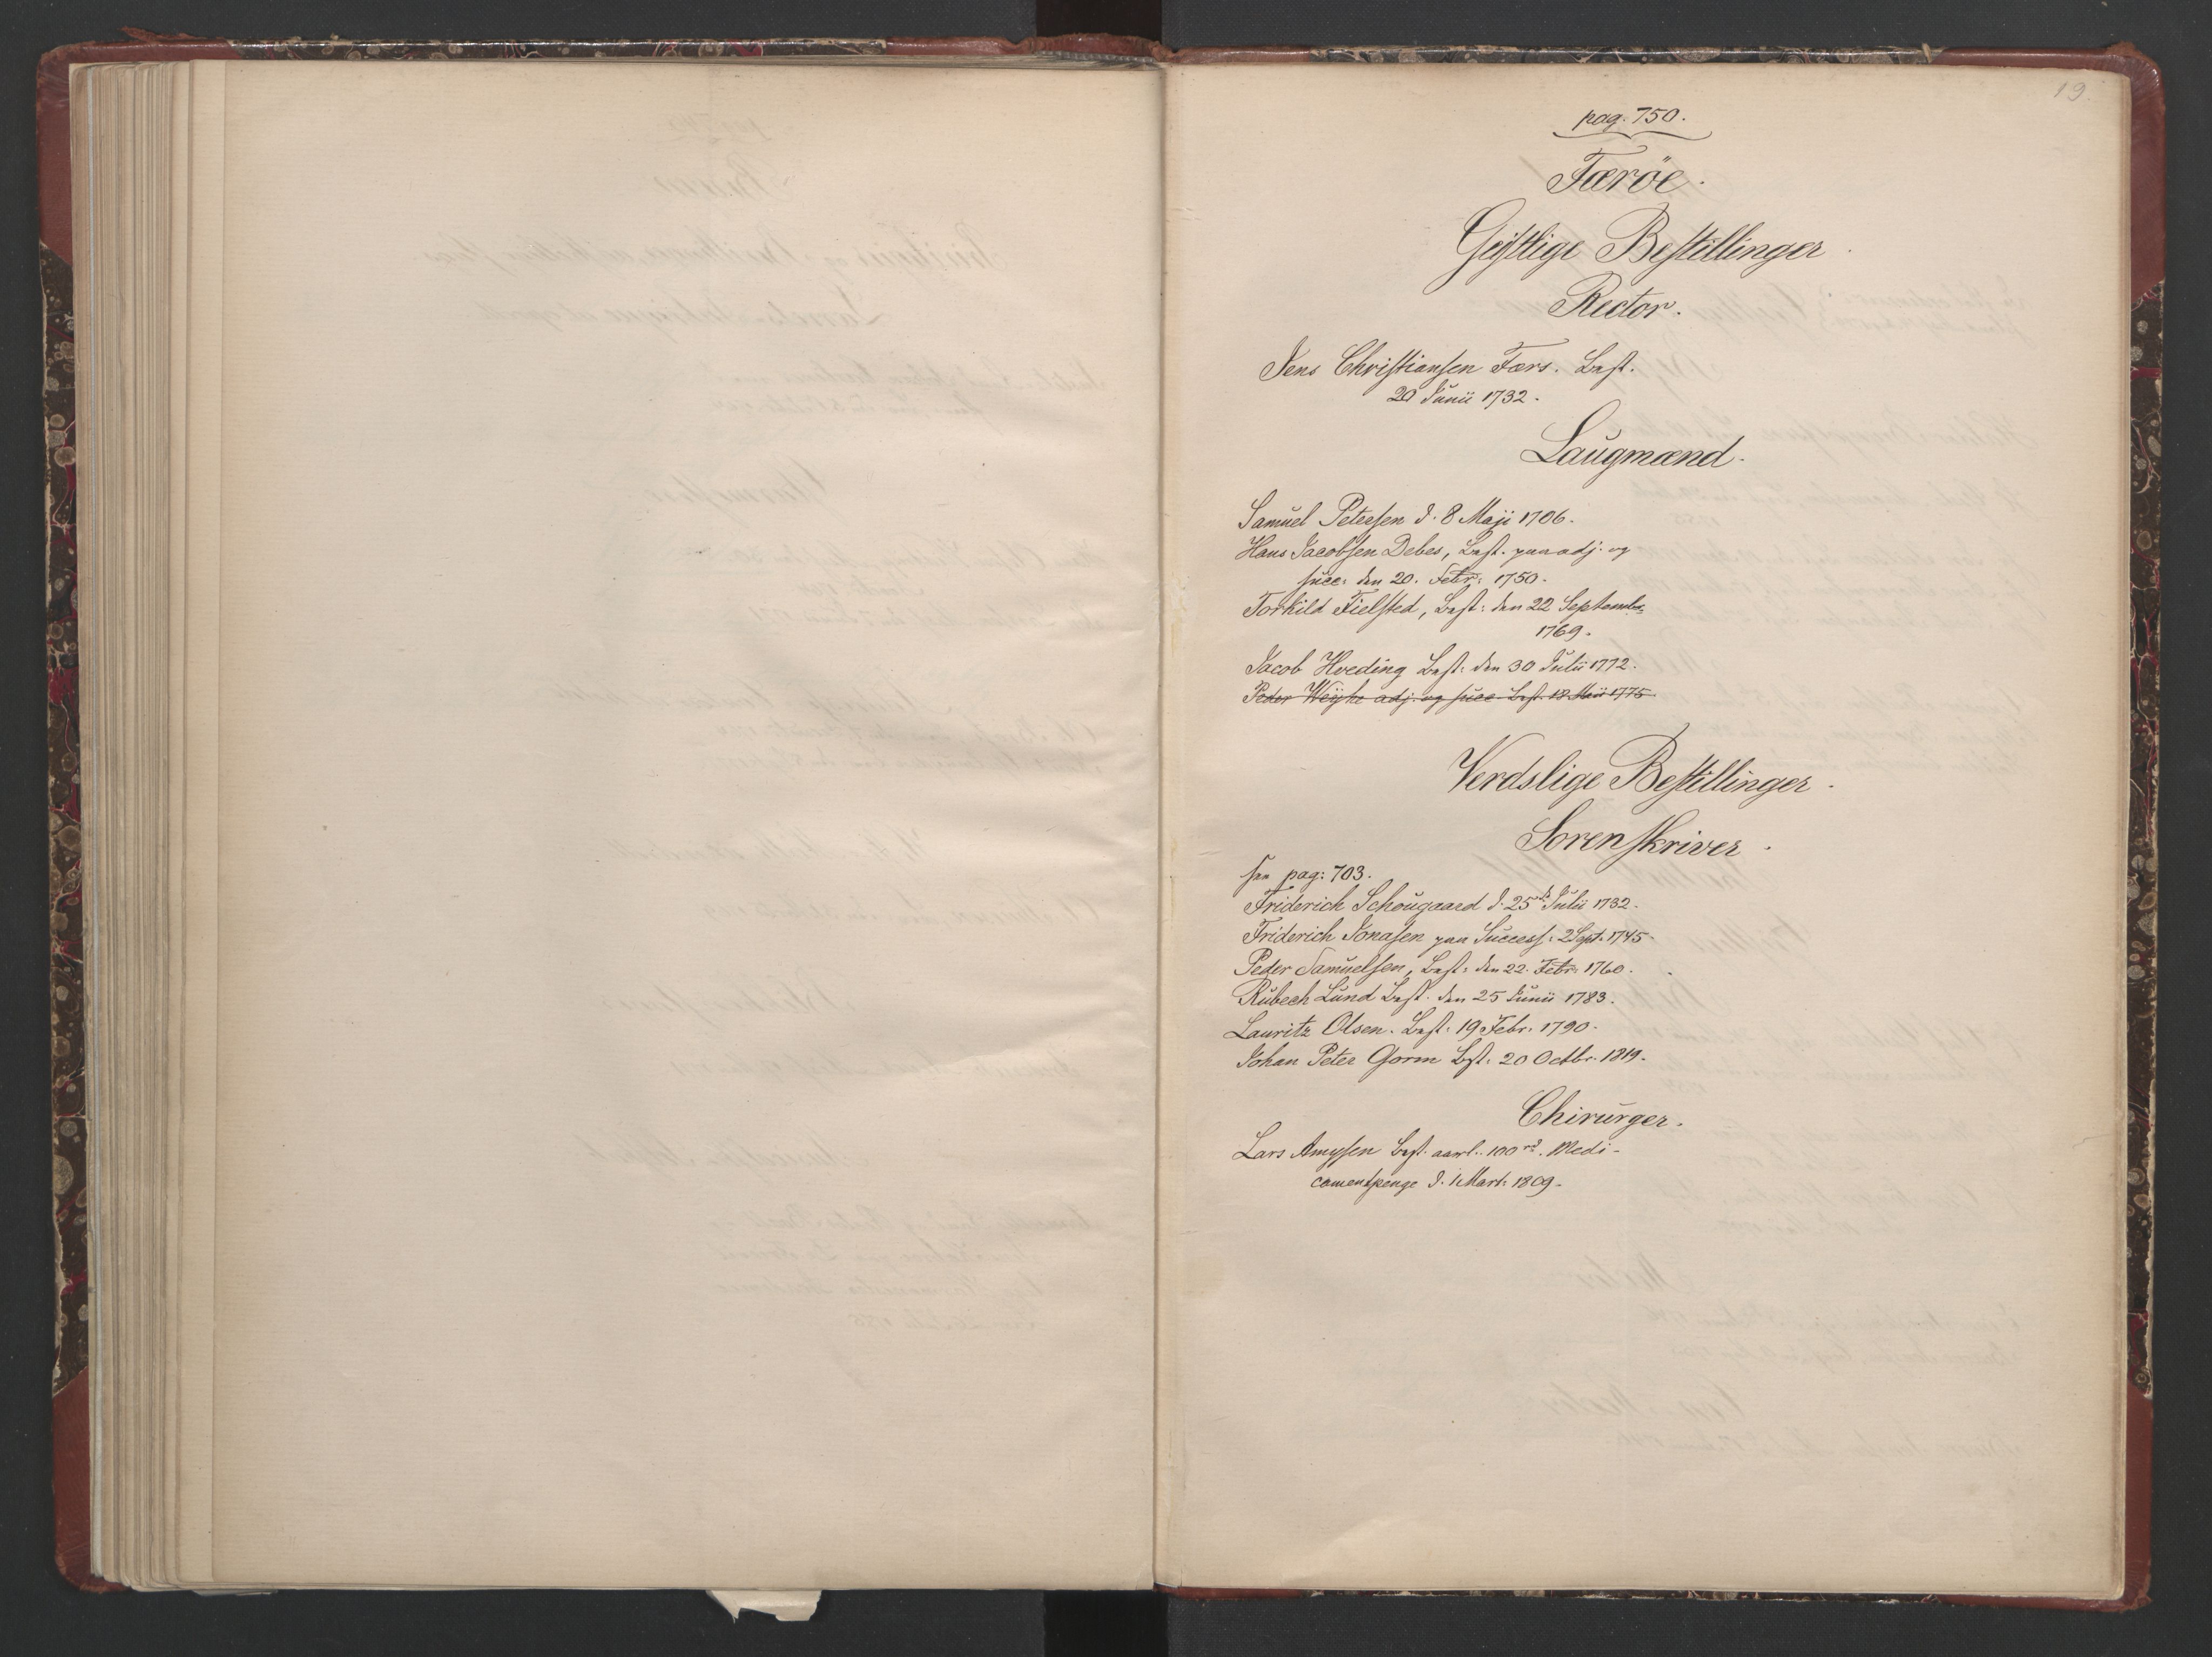 19.
pag. 750.
Færöe.
Gejstlige Bestillinger.
Rector.
Jens Christiansen Færs. Best.
20 Junii 1732.
Laugmænd.
Samuel Petersen d. 8 Maji 1706.
Hans Jacobsen Debes, Best. paa adj. og
succ: den 20. Febr: 1750.
Torkild Fielsted, Best: den 22 Septembr:
1769.
Jacob Hveding Best: den 30 Julii 1772.
Peder Weyhe adj. og succ. Best. 18 Maii 1775
Verdslige Bestillinger.
Sorenskriver.
see pag: 703.
Friderich Schougaard d. 25de Julii 1732.
Friderich Jonasen paa Success: 2 Sept. 1745.
Peder Samuelsen, Best: den 22. Febr: 1760.
Rubech Lund Best. den 25 Junii 1783.
Lauritz Olsen. Best: 19 Febr: 1790.
Johan Peter Gorm Bst: 20 Octbr. 1819.
Chirurger.
Lars Best. aarl. 100 rd. Medi-
camentpenge d. 1 Mart: 1809.